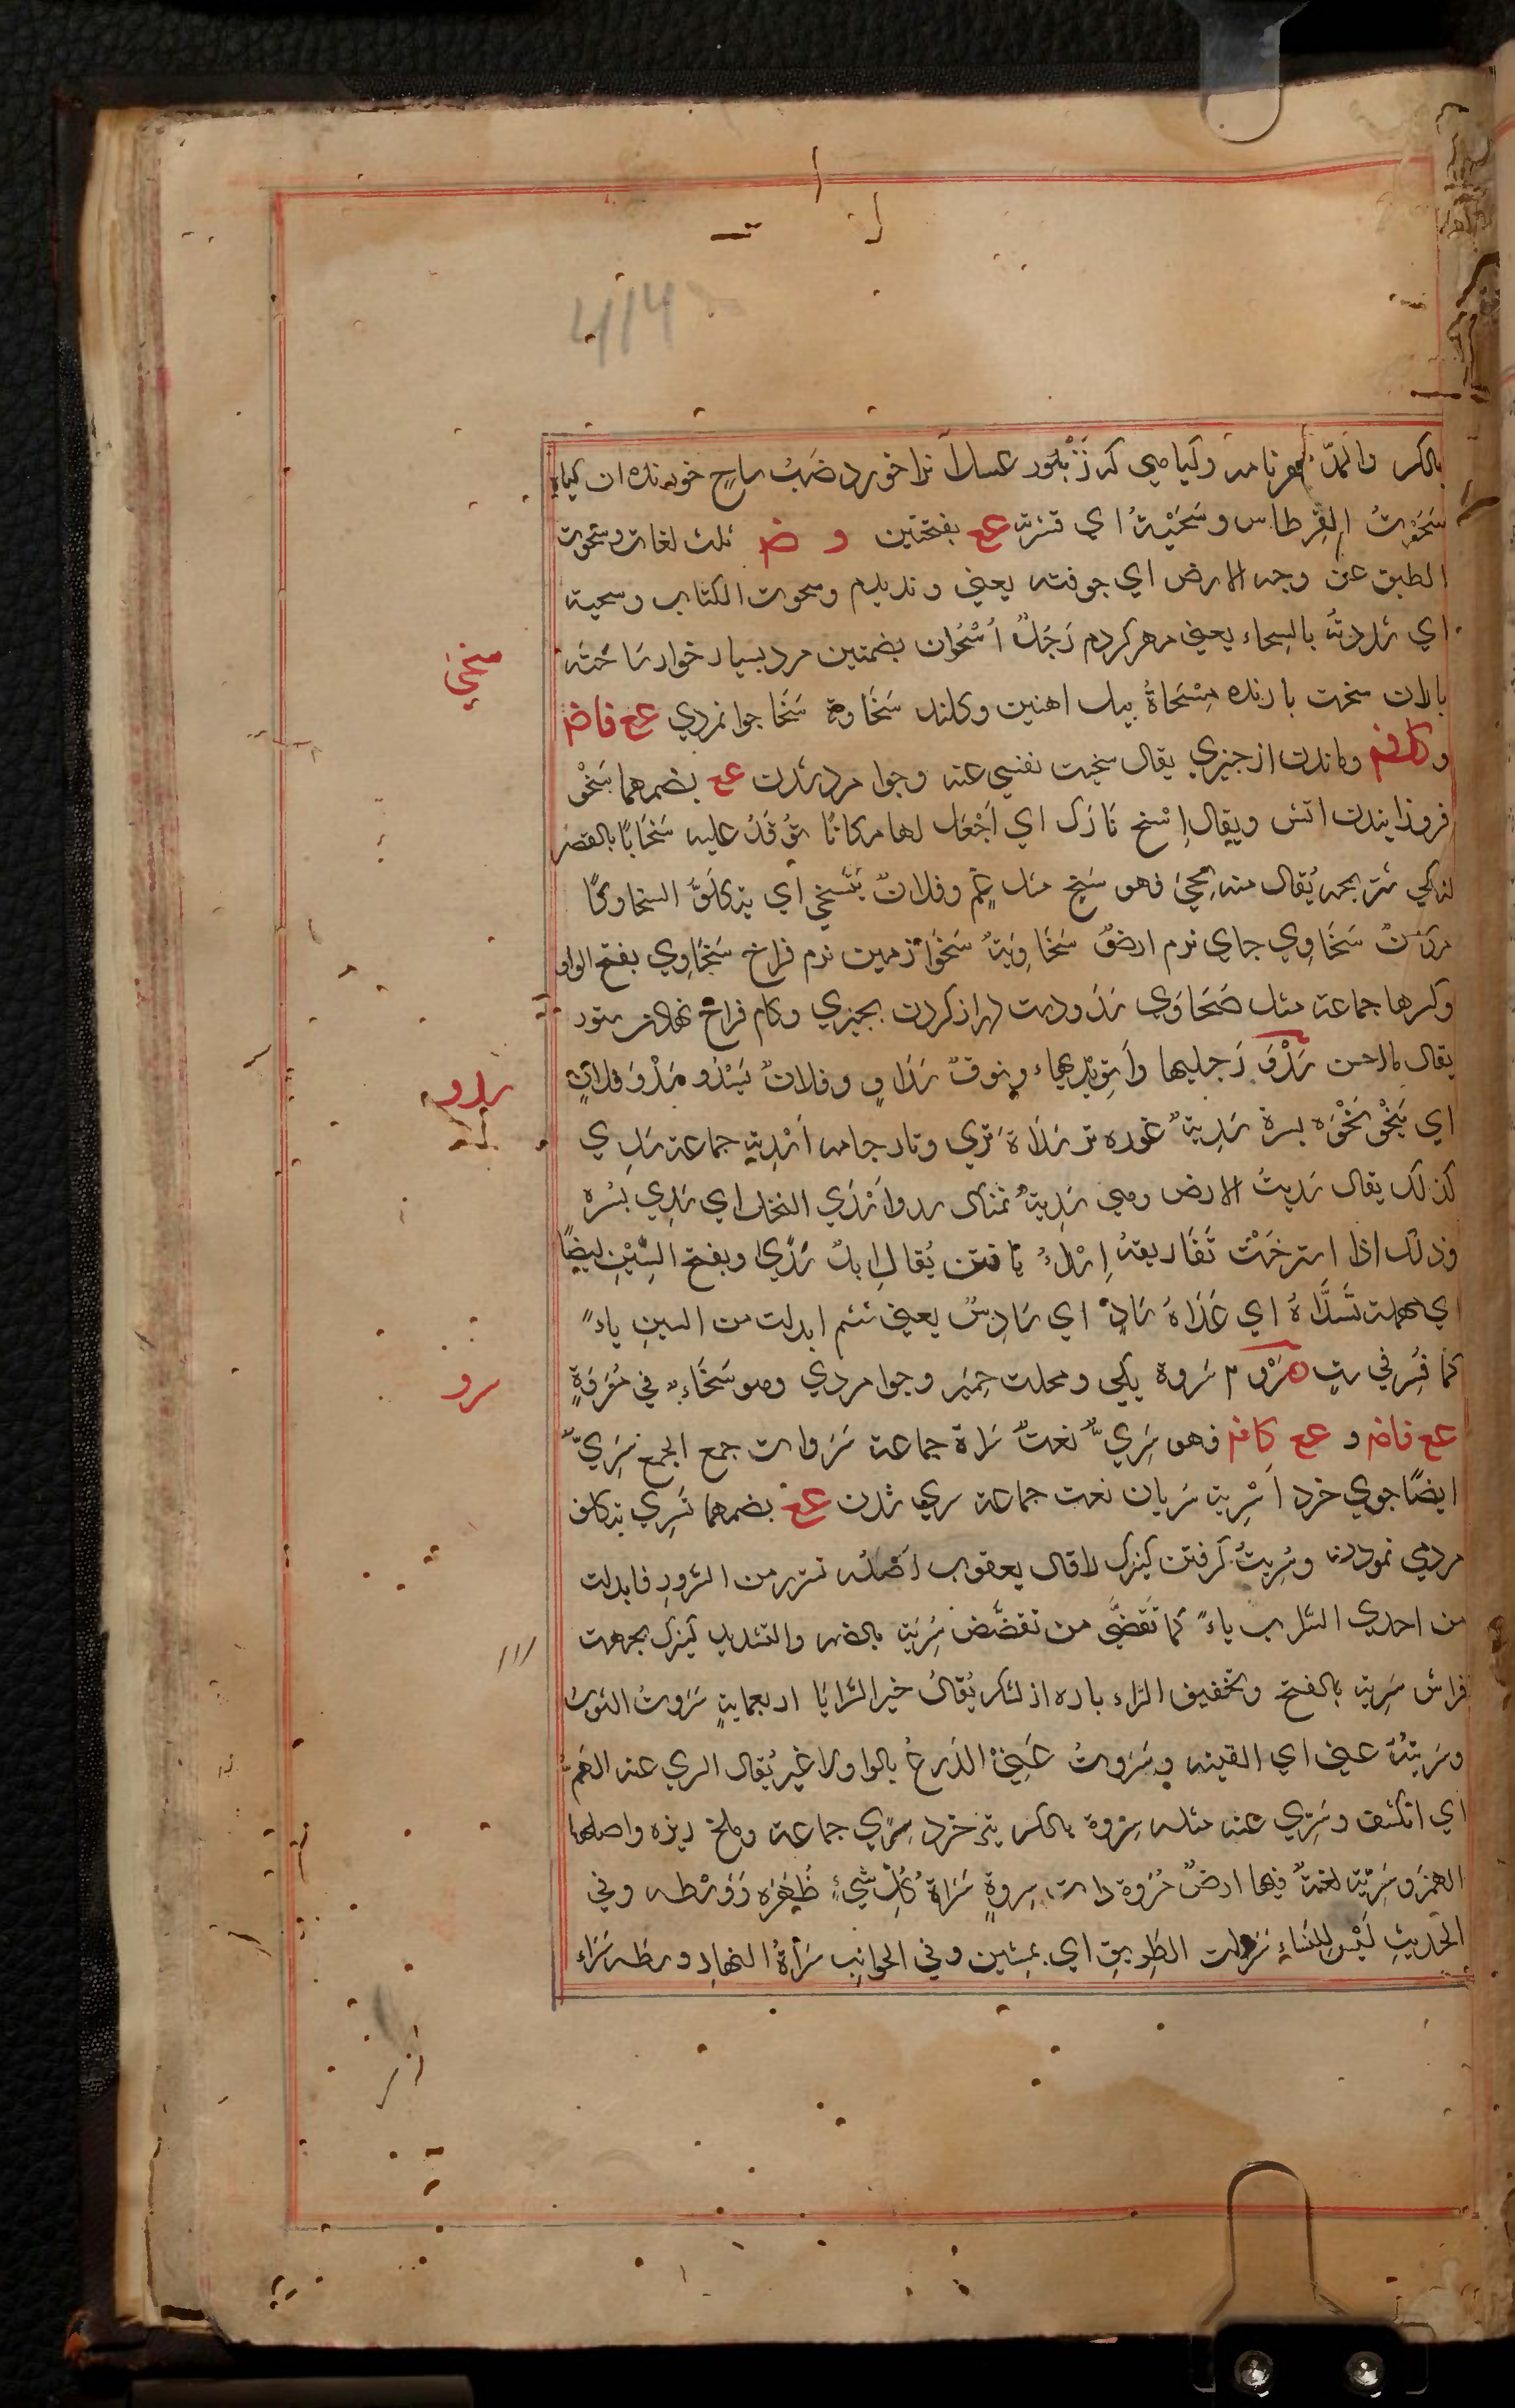 414
بالكسر والمدّ مهر نامه وكياهي كه زنبور عسل آنرا خورد ضبّ ساحٍ خورنده ان كياه
سَحَوْتُ القِرطاس وسَحَيْتُهُ اي قشرته عع بفتحتين و ض ثلث لغات وسحوت
الطبق عن وجه الارض اي جرفته يعني ونديدم وسحوت الكتاب وسحيته
اي شددته بالسِحاء يعني مهر كردم رَجُلٌ أُسْحُوان بضمتين مرد بسيار خوار سَاحته
باران سخت بارنده مِسْحَاةٌ بيل اهنين وكلند سَخَاوة سَخَا جوانمردي عع فاض
وكافم وماندن از چيزي يقال سخيت نفسي عنه وجوامرد شدن عع بضمهما سَخْو
فروزانيدن اتش ويقال إسْخ نَارَك اي اَجْعَل لها مكانًا تُوْقَدُ عليه سَخَايًا بالقصر
لنكي شتر بچه يُقال منه سخي فهو سَخٍ مثل عَمٍ وفلانٌ يَتَسخي اي يتكلَّفُ السخاوة
مكانٌ سَخَاوِي جاي نرم ارضٌ سَخَاوِيَةٌ سَخْوَا زمين نرم فراخ سَخَاوِي بفتح الواو
وكسرها جماعة مثل صَحَاوَي سَدْو دست دراز كردن بچيزي وكام فراخ نهادن ستور
يقال ما احسن سَدْوَ رَجليها وأتو يديها ونوقٌ سَدَاوٍ وفلانٌ يَسْدُو سَدْوَ فلانٍ
اي يَنْحُو نَحْوَه بسرة سَدِيَةٌ غوره تر سَدَاة تري وتار جامه أسْدِية جماعة سَدِي
كذلك يقال سَدِيتُ الارض وهي سَدِيَةٌ نمناك سدوا أسْدَي النخل اي سَدِي بُسْره
وذلك اذا استرخَتْ ثَفَاريقه إسْدَاءٌ يافتن يُقال إبلٌ سُدًي وبفتح السِّيْنِ ايضًا
اي مهملة تَسَدَّاهُ اي عَلَاهُ سَادٍ اي سَادِسٌ يعني ششم ابدلت من السين ياءً
كما فُسِر في ستٍ سَرْو م سَروة يكي ومحلت حِمْير وجوامردي وهو سَخَاءٌ في مُرُوَةٍ
عع فاض و عع كافم فهو سَرِيٌّ نعتٌ سَراة جماعة سَرَوات جمع الجمع سَرِيٌّ
ايضًا جوي خرد أسْرِية سَريان نعت جماعة سري شدن عع بضمهما تَسَرِي بتكلف
مردمي نمودن وسُرِيتُ كرفتن كنيزك لا قال يعقوب اَصْلُه تسرر من السُّرور فابدلت
من احدي الرَّاءات ياءً كما تَقَضَّي من تقضَّض سُرِيَة بالضم والتشديد كنيزك بجهت
فراش سَرِية بالفتح وتخفيف الراء باره از لشكر يُقالُ خير السَّرايَا اربعمايةٍ سَرَوتُ الثوبَ
وسَرَيتُهُ عني اي القيته وسَرَوتُ عَنِّيْ الدَّرعَ بالواو لا غيرُ يُقال انسري عنه الهَمُّ
اي انكشف وسُرِي عنه مثله سِروة بالكسر تير خرد سِرًي جماعة وملخ ريزه واصلها
الهمز وسِرْيَة لغةٌ فيها ارضٌ مَسْرُوة ذات سِروةٍ سَرَاةُ كُلِّ شيءٍ ظَهْرُه وَوَسْطُه وفي
الحديثِ لَيْسَ للنساءِ سَرَوات الطريقِ اي يمشين وفي الجوانب سَراةُ النهارِ وسطه سَراء
سخي
سدو
سرو